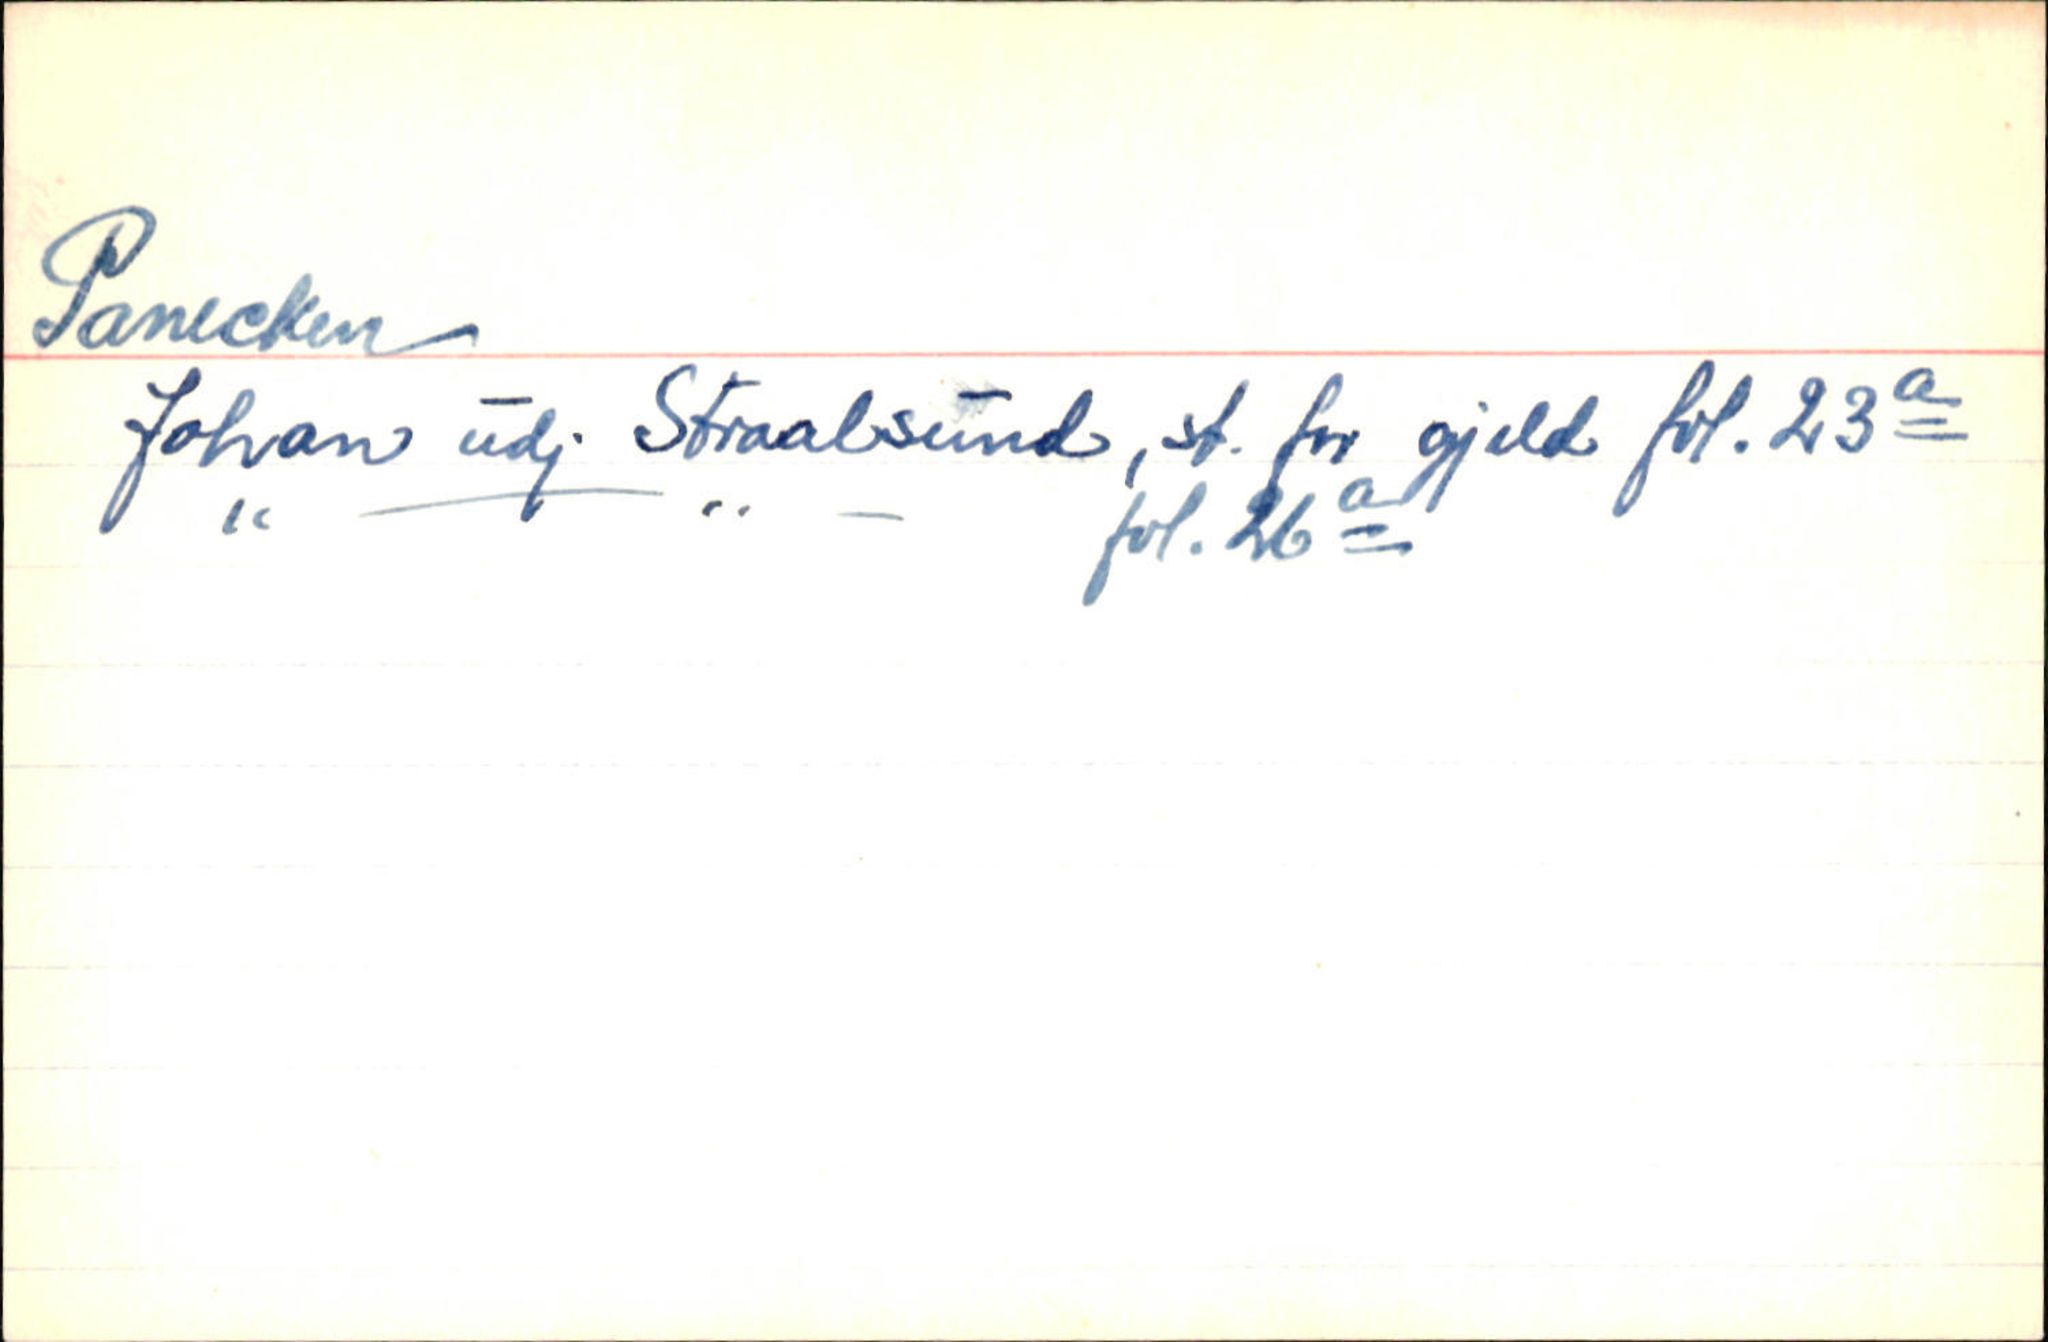 Panecken
Johan udj. Straalsund, st. for gjeld fol. 23a
" — " — fol. 26a